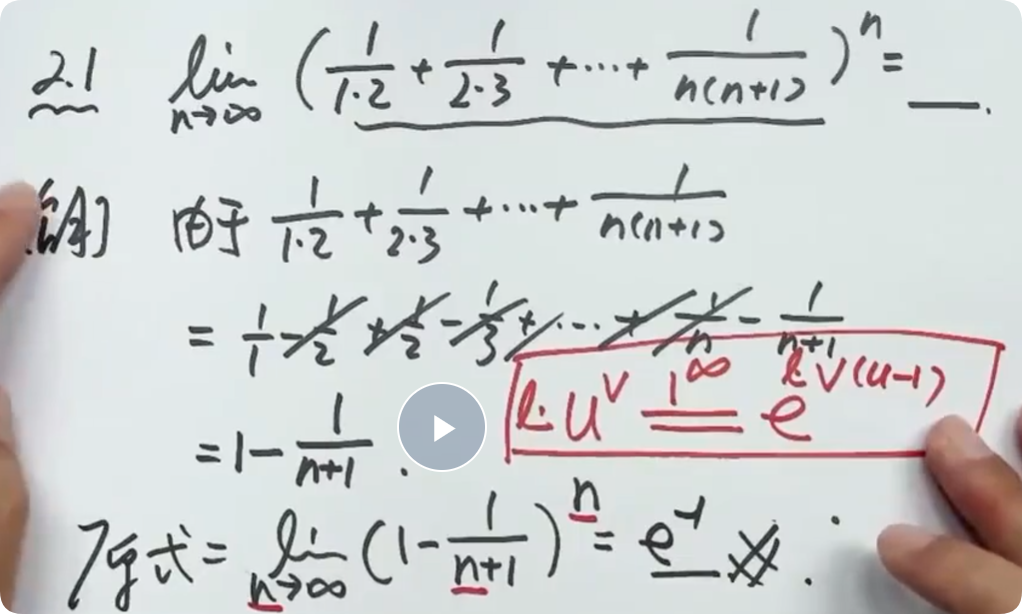 2.1 lim n→∞ (1/(1·2) + 1/(2·3) + ··· + 1/(n(n+1)))^n = ___.
[解] 由于 1/(1·2) + 1/(2·3) + ··· + 1/(n(n+1))
= 1/1 - 1/2 + 1/2 - 1/3 + ··· + 1/n - 1/(n+1)
= 1 - 1/(n+1) .
li u^v =(1^∞)= e^(li v(u-1))
原式 = lim n→∞ (1 - 1/(n+1))^n = e^-1